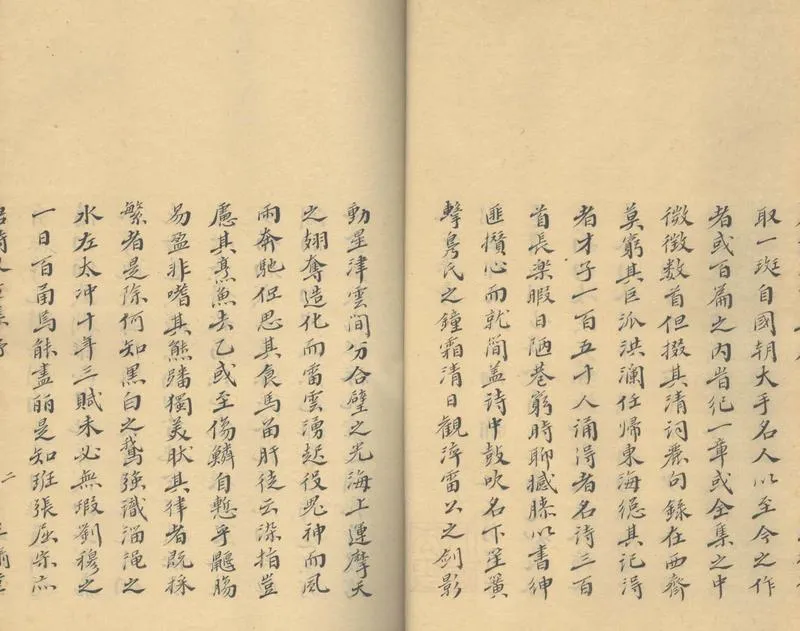 取一斑自國朝大手名人以至今之作
者或百篇之内省紀一章或全集之中
微徵數首但掇其清詞麗句錄在西齋
莫窮其巨派洪瀾任歸東海總其記淂
者才子一百五十人誦淂者名詩三百
首長樂暇日陋巷窮時聊撼膝以書紳
匪攢心而就簡盖詩中鼓吹名下笙簧
擊鳧氏之鐘霜清日觀淬雷公之劍影
動星津雲間分合璧之光海上運摩天
之翅奪造化而雷雲湧起役鬼神而風
雨奔馳但思其食馬留肝徒云染指豈
慮其烹魚去乙或至傷鱗自慙乎鼴腸
易盈非嗜其熊蹯獨美肰其律者既採
繁者是除何知黑白之鵞強識淄澠之
水左太冲十年三賦未必無瑕劉穆之
一日百函焉能盡麗是知班張屈宋亦